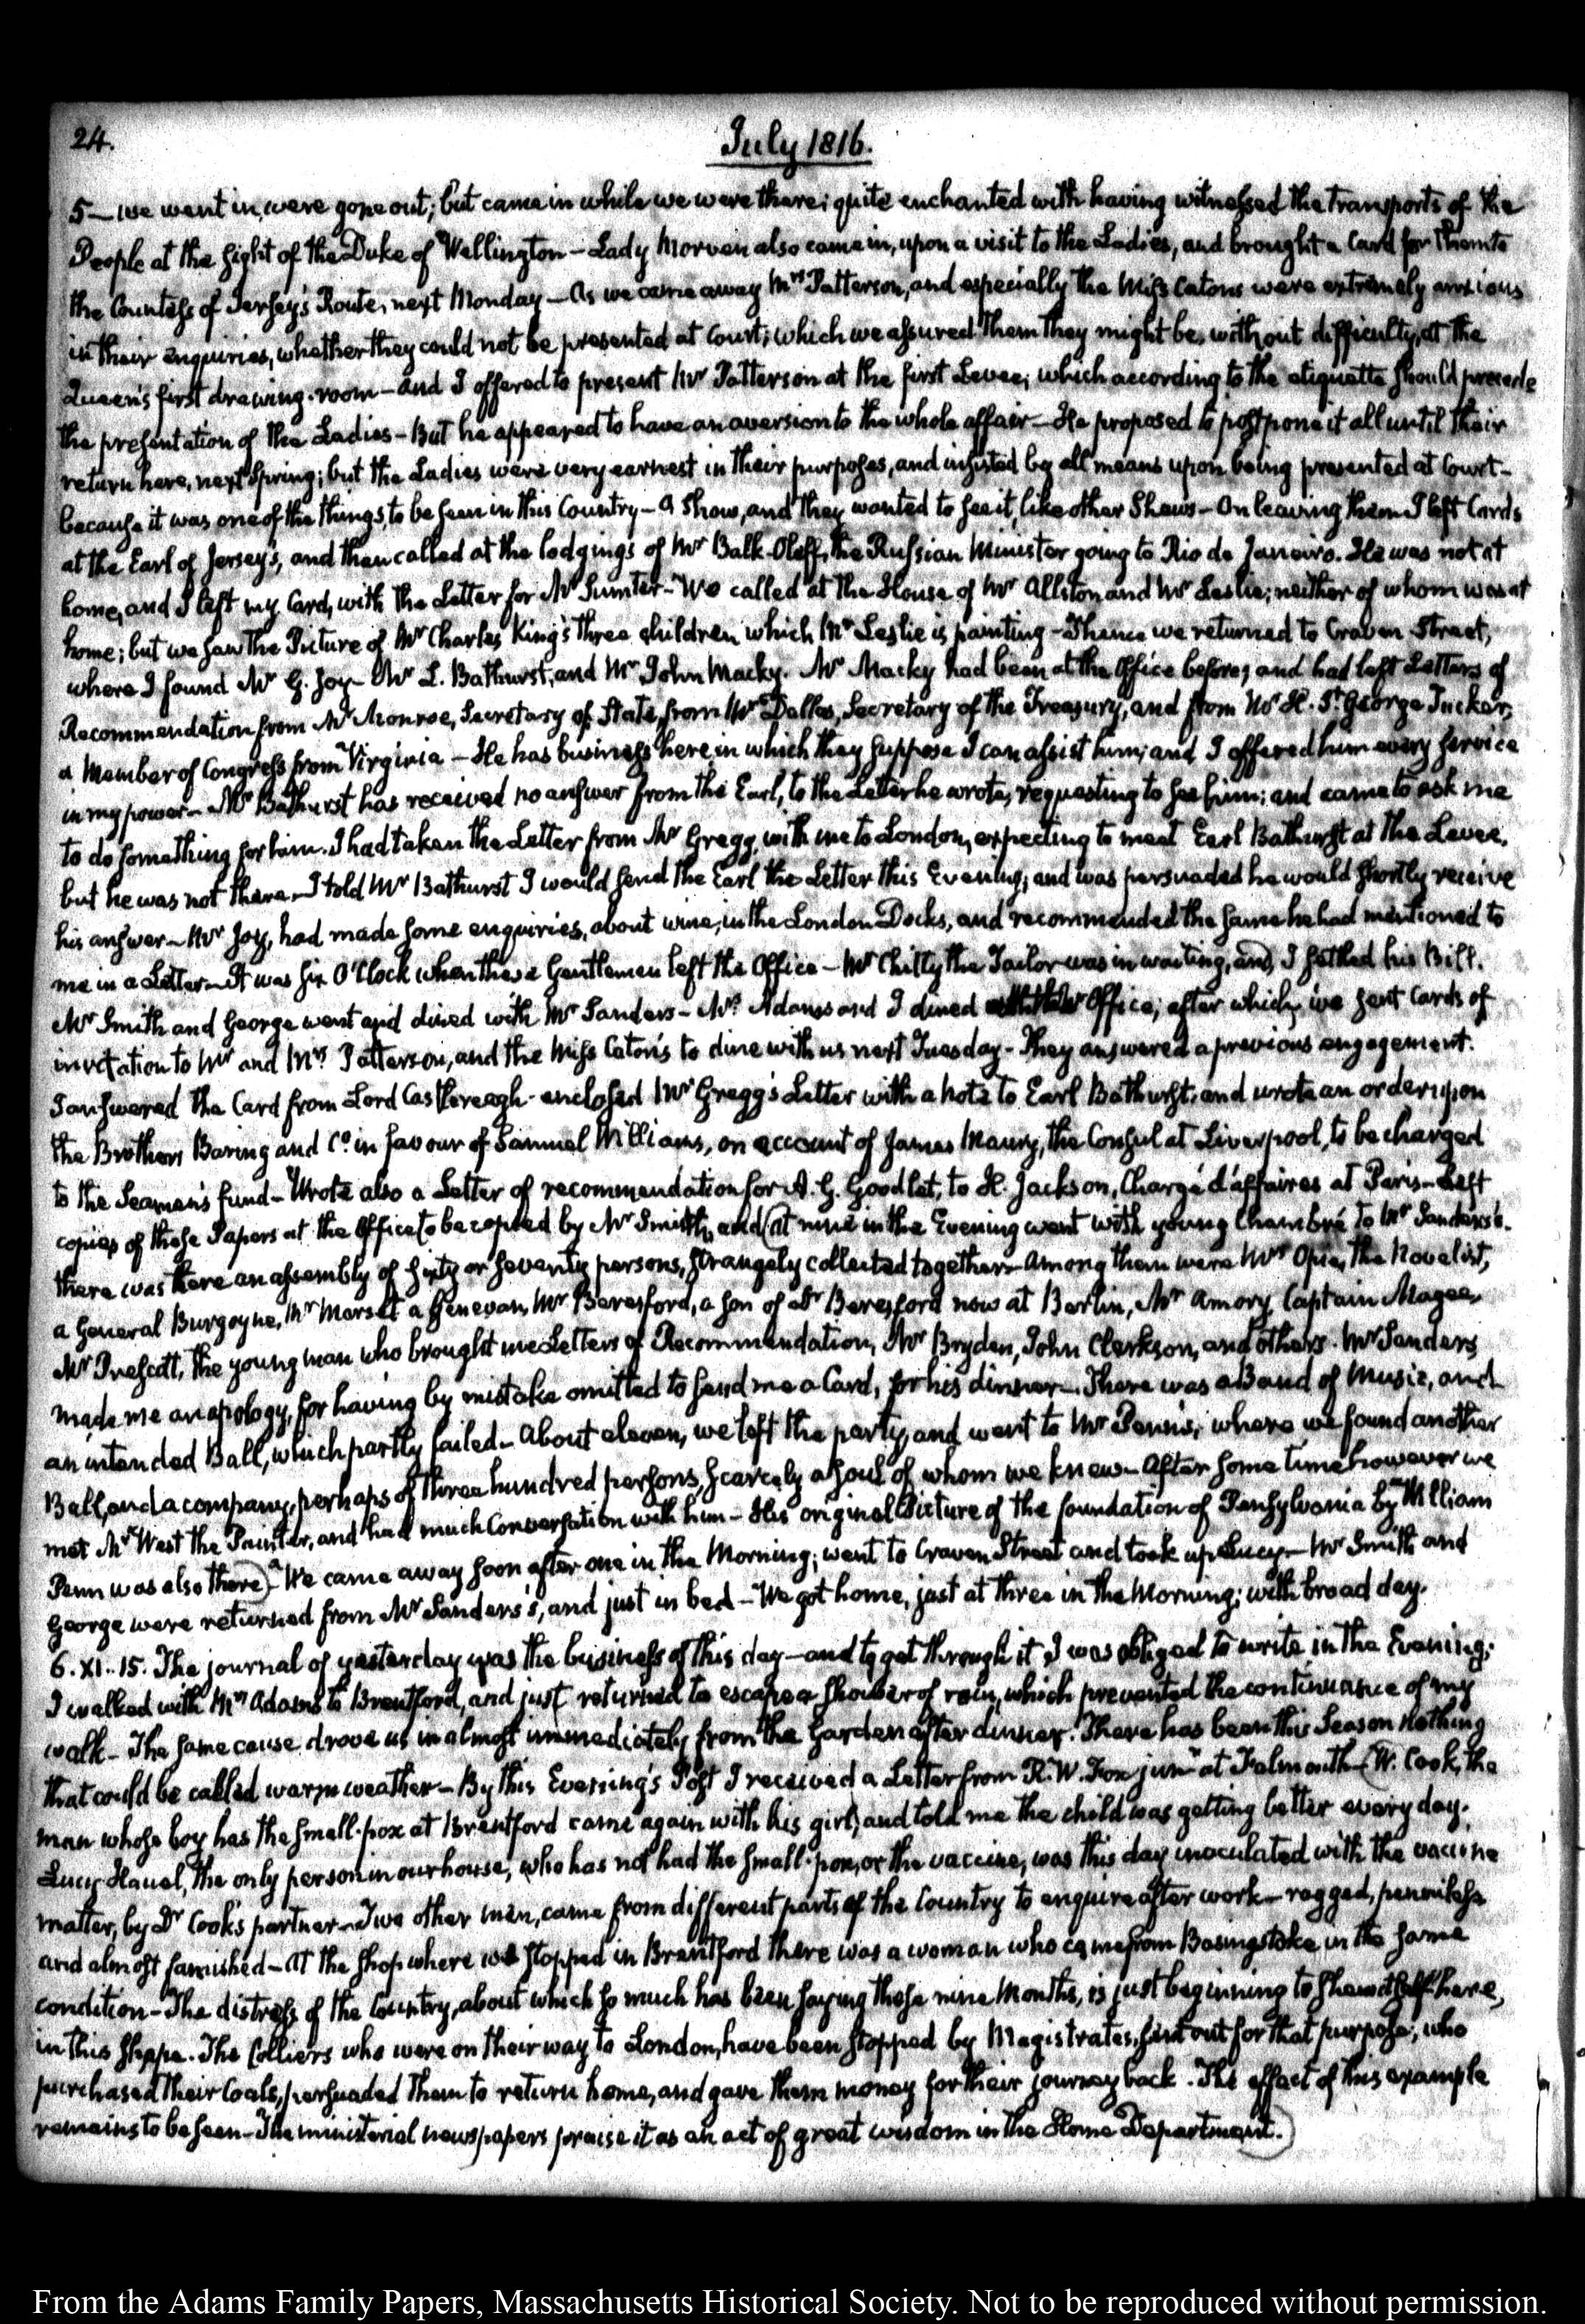 24.
July 1816.
5 — we went in, were gone out; but came in while we were there; quite enchanted with having witnessed the transports of the
People at the sight of the Duke of Wellington — Lady Morven also came in, upon a visit to the Ladies, and brought a Card for them to
the Countess of Jersey's Route, next Monday — As we came away Mrs Patterson, and especially the Miss Catons were extremely anxious
in their enquiries, whether they could not be presented at Court; which we assured them they might be, without difficulty, at the
Queen's first drawing-room — and I offered to present Mr Patterson at the first Levee; which according to the etiquette should precede
the presentation of the Ladies — But he appeared to have an aversion to the whole affair — He proposed to postpone it all until their
return here, next Spring; but the Ladies were very earnest in their purposes, and insisted by all means upon being presented at Court —
because it was one of the things, to be seen in this Country — A Show, and they wanted to see it, like other Shews — On leaving them I left Cards
at the Earl of Jersey's, and then called at the lodgings of Mr Balk-Poleff, the Russian Minister going to Rio de Janeiro. He was not at
home, and I left my Card, with the Letter for Mr Sumter — We called at the House of Mr Allston and Mr Leslie; neither of whom was at
home; but we saw the Picture of Mr Charles King's three children which Mr Leslie is painting — Thence we returned to Craven Street,
where I found Mr G. Joy — Mr L. Bathurst, and Mr John Macky. Mr Macky had been at the Office before; and had left Letters of
Recommendation from Mr Monroe, Secretary of State, from Mr Dallas, Secretary of the Treasury, and from Mr H. St. George Tucker,
a Member of Congress from Virginia — He has business here, in which they suppose I can assist him; and I offered him every service
in my power — Mr Bathurst has received no answer from the Earl, to the Letter he wrote, requesting to see him; and came to ask me
to do something for him. I had taken the Letter from Mr Gregg, with me to London, expecting to meet Earl Bathurst at the Levee,
but he was not there — I told Mr Bathurst I would send the Earl the Letter this Evening; and was persuaded he would shortly receive
his answer — Mr Joy, had made some enquiries, about wine, in the London Docks, and recommended the same he had mentioned to
me in a Letter — It was six O'Clock when these Gentlemen left the Office — Mr Chitty the Tailor was in waiting, and I settled his Bill.
Mr Smith and George went and dined with Mr Sanders — Mrs Adams and I dined Office; after which, we sent Cards of
invitation to Mr and Mrs Patterson, and the Miss Caton's to dine with us next Tuesday — They answered a previous engagement.
I answered the Card from Lord Castlereagh — enclosed Mr Gregg's Letter with a note to Earl Bathurst, and wrote an order upon
the Brothers Baring and Co. in favour of Samuel Williams, on account of James Maury, the Consul at Liverpool, to be charged
to the Seamen's fund — Wrote also a Letter of recommendation for A. G. Goodlet, to H. Jackson, Chargé d'affaires at Paris — Left
copies of these Papers at the Office to be copied by Mr Smith, and (at nine in the Evening went with young Chambré to Mr Sanders's.
there was there an assembly of sixty or seventy persons, strangely collected together — Among them were Mrs Opie, the Novelist,
a General Burgoyne, Mr Marset a Genevan, Mr Beresford, a son of Dr Beresford now at Berlin, Mr Amory, Captain Magee,
Mr Prescott, the young man who brought me Letters of Recommendation, Mr Boyden, John Clarkson, and others. Mr Sanders
made me an apology, for having by mistake omitted to send me a Card, for his dinner — There was a Band of Music, and
an intended Ball, which partly failed — About eleven, we left the party, and went to Mr Penn's; where we found another
Ball, and a company, perhaps of three hundred persons, scarcely a soul of whom we knew — After some time however we
met Mr West the Painter, and had much Conversation with him — His original Picture of the foundation of Pensylvania by William
Penn was also there) — We came away soon after one in the Morning; went to Craven Street and took up Lucy — Mr Smith and
George were returned from Mr Sanders's, and just in bed — We got home, just at three in the Morning; with broad day.
6. XI..15. The journal of yesterday was the business of this day — and to get through it, I was obliged to write in the Evening;
I walked with Mrs Adams to Brentford, and just returned to escape a shower of rain, which prevented the continuance of my
walk — The same cause drove us in almost immediately from the Garden after dinner. There has been this Season nothing
that could be called warm weather — By this Evening's Post I received a Letter from R. W. Fox junr at Falmouth — (W. Cook, the
man whose boy has the small-pox at Brentford came again with his girl, and told me the child was getting better every day.
Lucy Hauel, the only person in our house, who has not had the small-pox, or the vaccine, was this day inoculated with the vaccine
matter, by Dr Cook's partner — Two other men, came from different parts of the Country to enquire after work — ragged, pennyless
and almost famished — At the shop where we stopped in Brentford there was a woman who came from Basingstoke in the same
condition — The distress of the Country, about which so much has been saying these nine Months, is just beginning to shew itself here,
in this shape. The Colliers who were on their way to London, have been stopped by Magistrates, sent out for that purpose; who
purchased their Coals, persuaded them to return home, and gave them money for their journey back. The effect of this example
remains to be seen — The ministerial newspapers praise it as an act of great wisdom in the Home Department.)
From the Adams Family Papers, Massachusetts Historical Society. Not to be reproduced without permission.